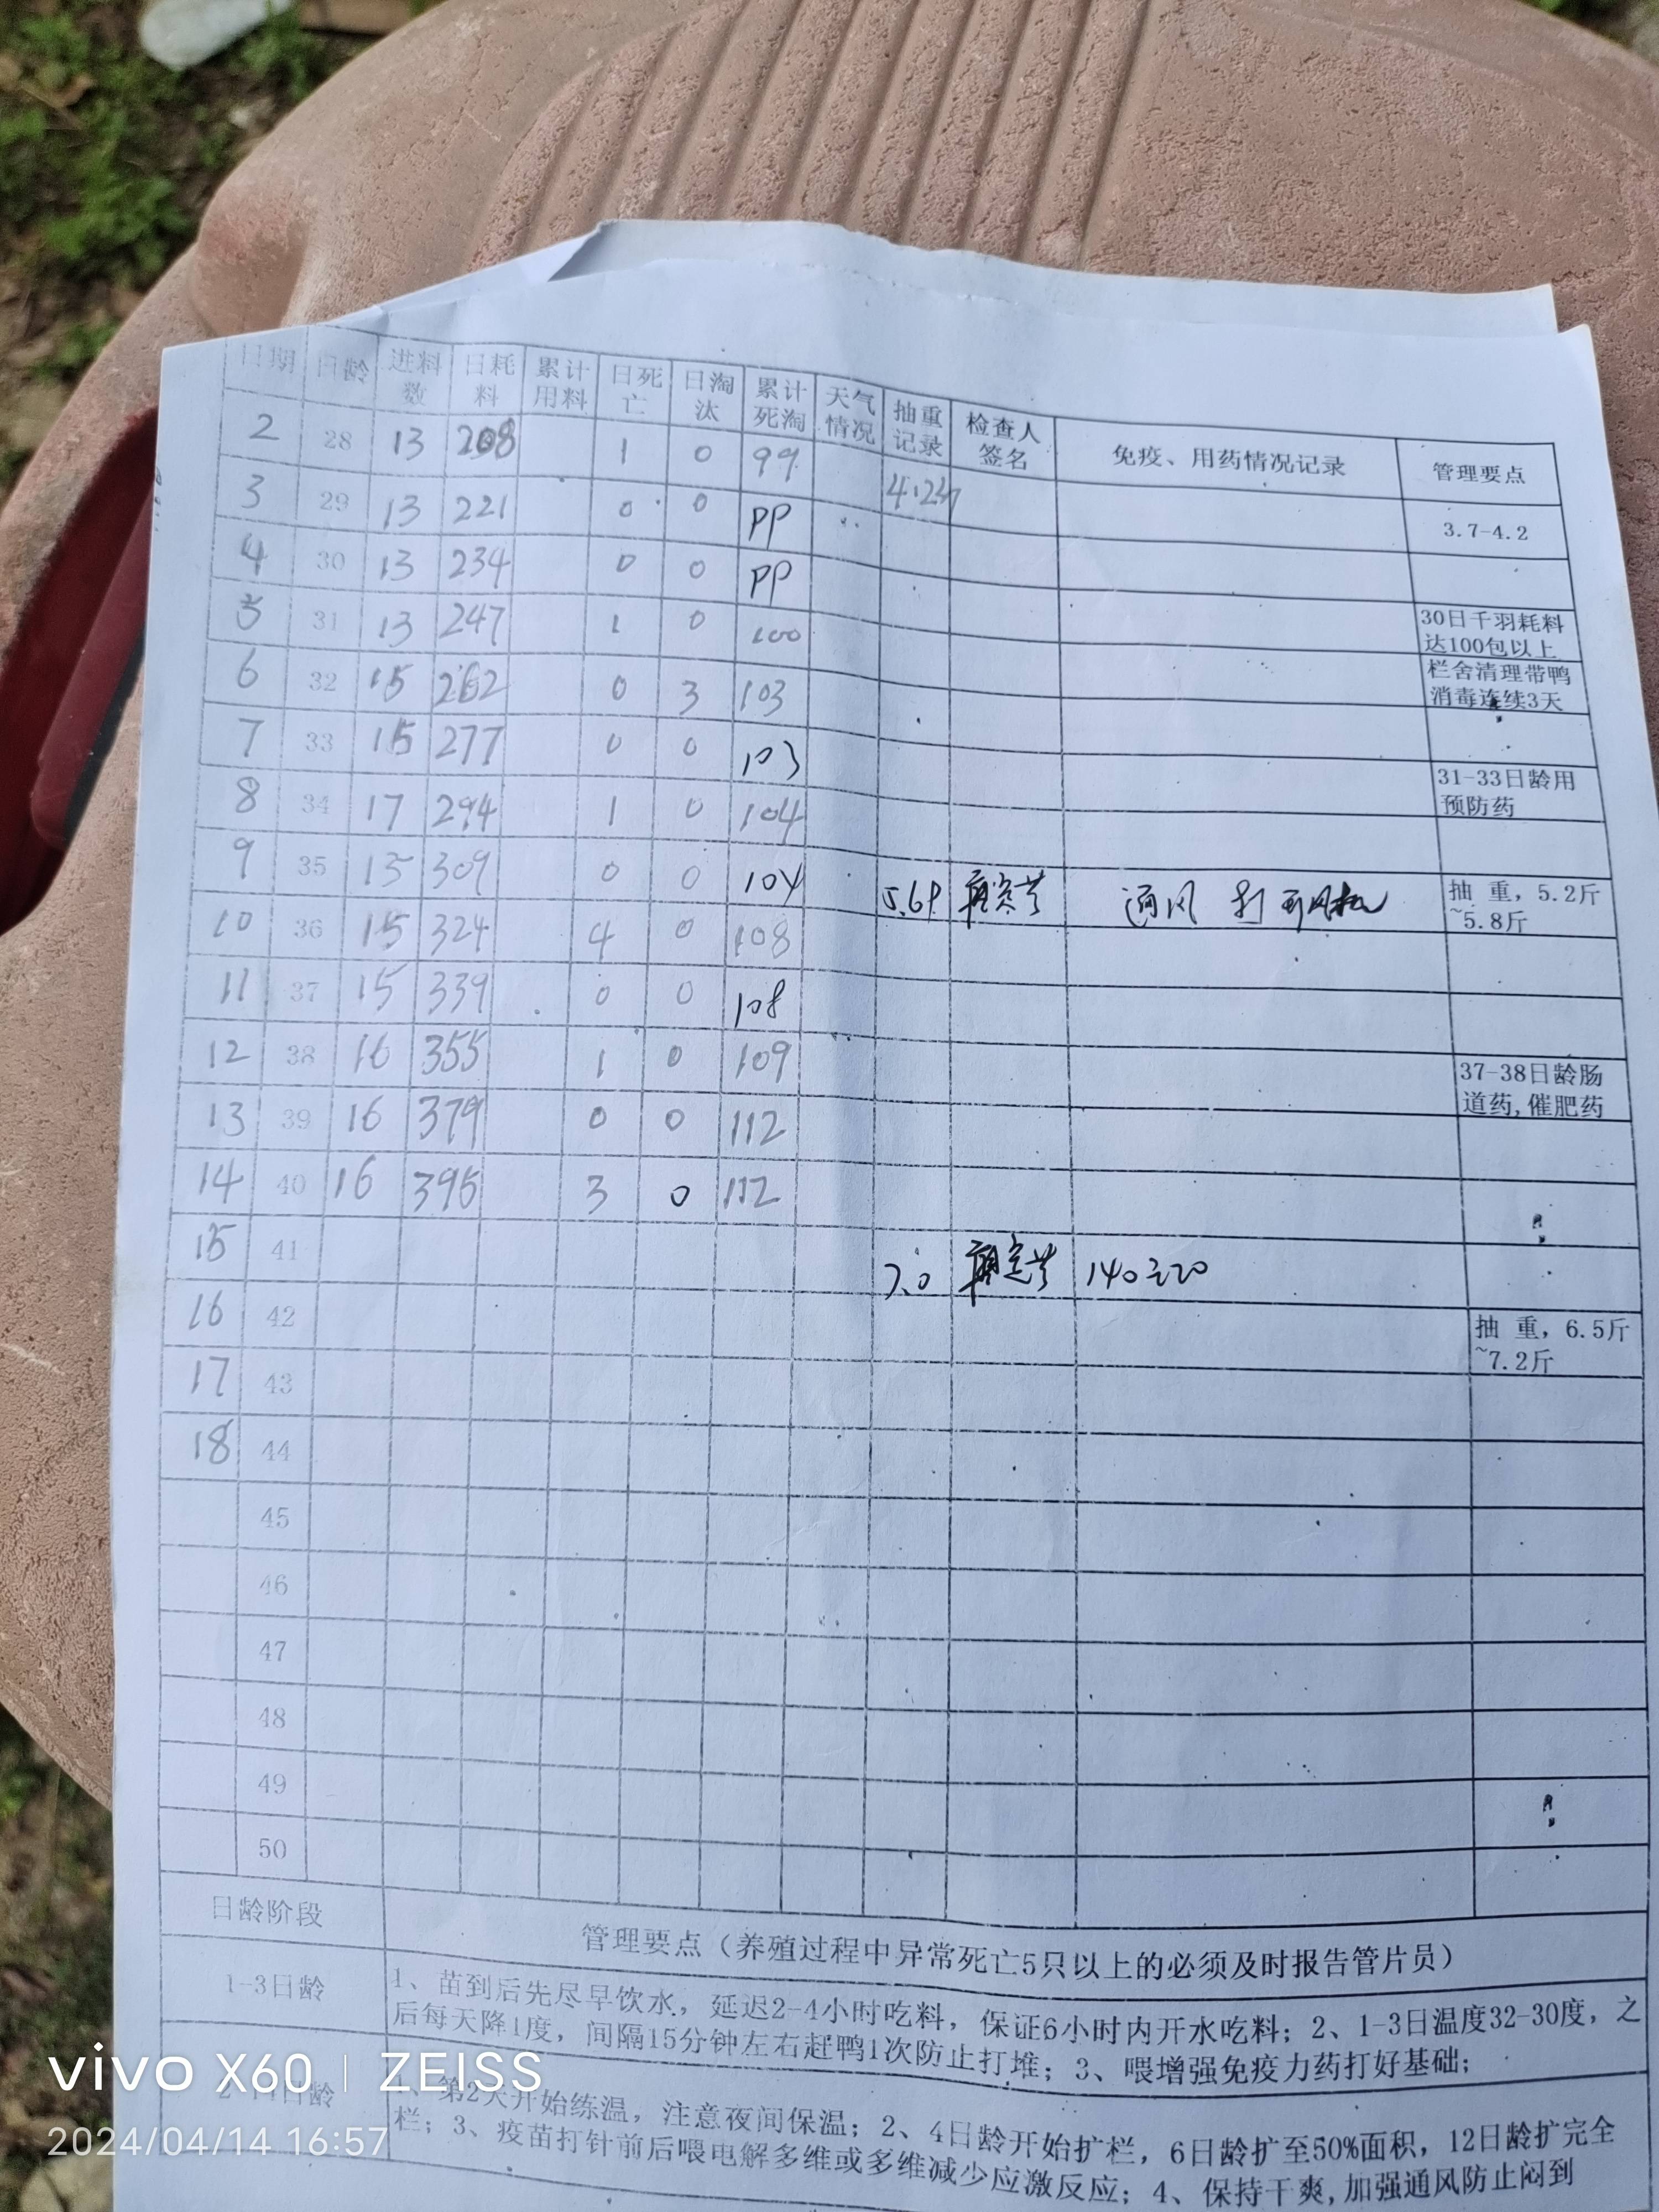 日期 日龄 进料数 日耗料 累计用料 日死亡 日淘汰 累计死淘 天气情况 抽重记录 检查人签名 免疫、用药情况记录 管理要点
2 28 13 208 1 0 99
3 29 13 221 0 0 99 4.2 3.7-4.2
4 30 13 234 0 0 99
5 31 13 247 1 0 100 30日千羽耗料达100包以上
6 32 15 262 0 3 103 栏舍清理带鸭消毒连续3天
7 33 15 277 0 0 103
8 34 17 294 1 0 104 31-33日龄用预防药
9 35 15 309 0 0 104
10 36 15 324 4 0 108 5.6 通风 抽 重，5.2斤~5.8斤
11 37 15 339 0 0 108
12 38 16 355 1 0 109
13 39 16 379 0 0 112 37-38日龄肠道药,催肥药
14 40 16 395 3 0 112
15 41
16 42 7.0 140 抽 重，6.5斤~7.2斤
17 43
18 44
45
46
47
48
49
50
日龄阶段 管理要点（养殖过程中异常死亡5只以上的必须及时报告管片员）
1-3日龄 1、苗到后先尽早饮水，延迟2-4小时吃料，保证6小时内开水吃料；2、1-3日温度32-30度，之
后每天降1度，间隔15分钟左右赶鸭1次防止打堆；3、喂增强免疫力药打好基础；
日龄 1、第2天开始练温，注意夜间保温；2、4日龄开始扩栏，6日龄扩至50%面积，12日龄扩完全
栏；3、疫苗打针前后喂电解多维或多维减少应激反应；4、保持干爽,加强通风防止闷到
vivo X60 | ZEISS
2024/04/14 16:57